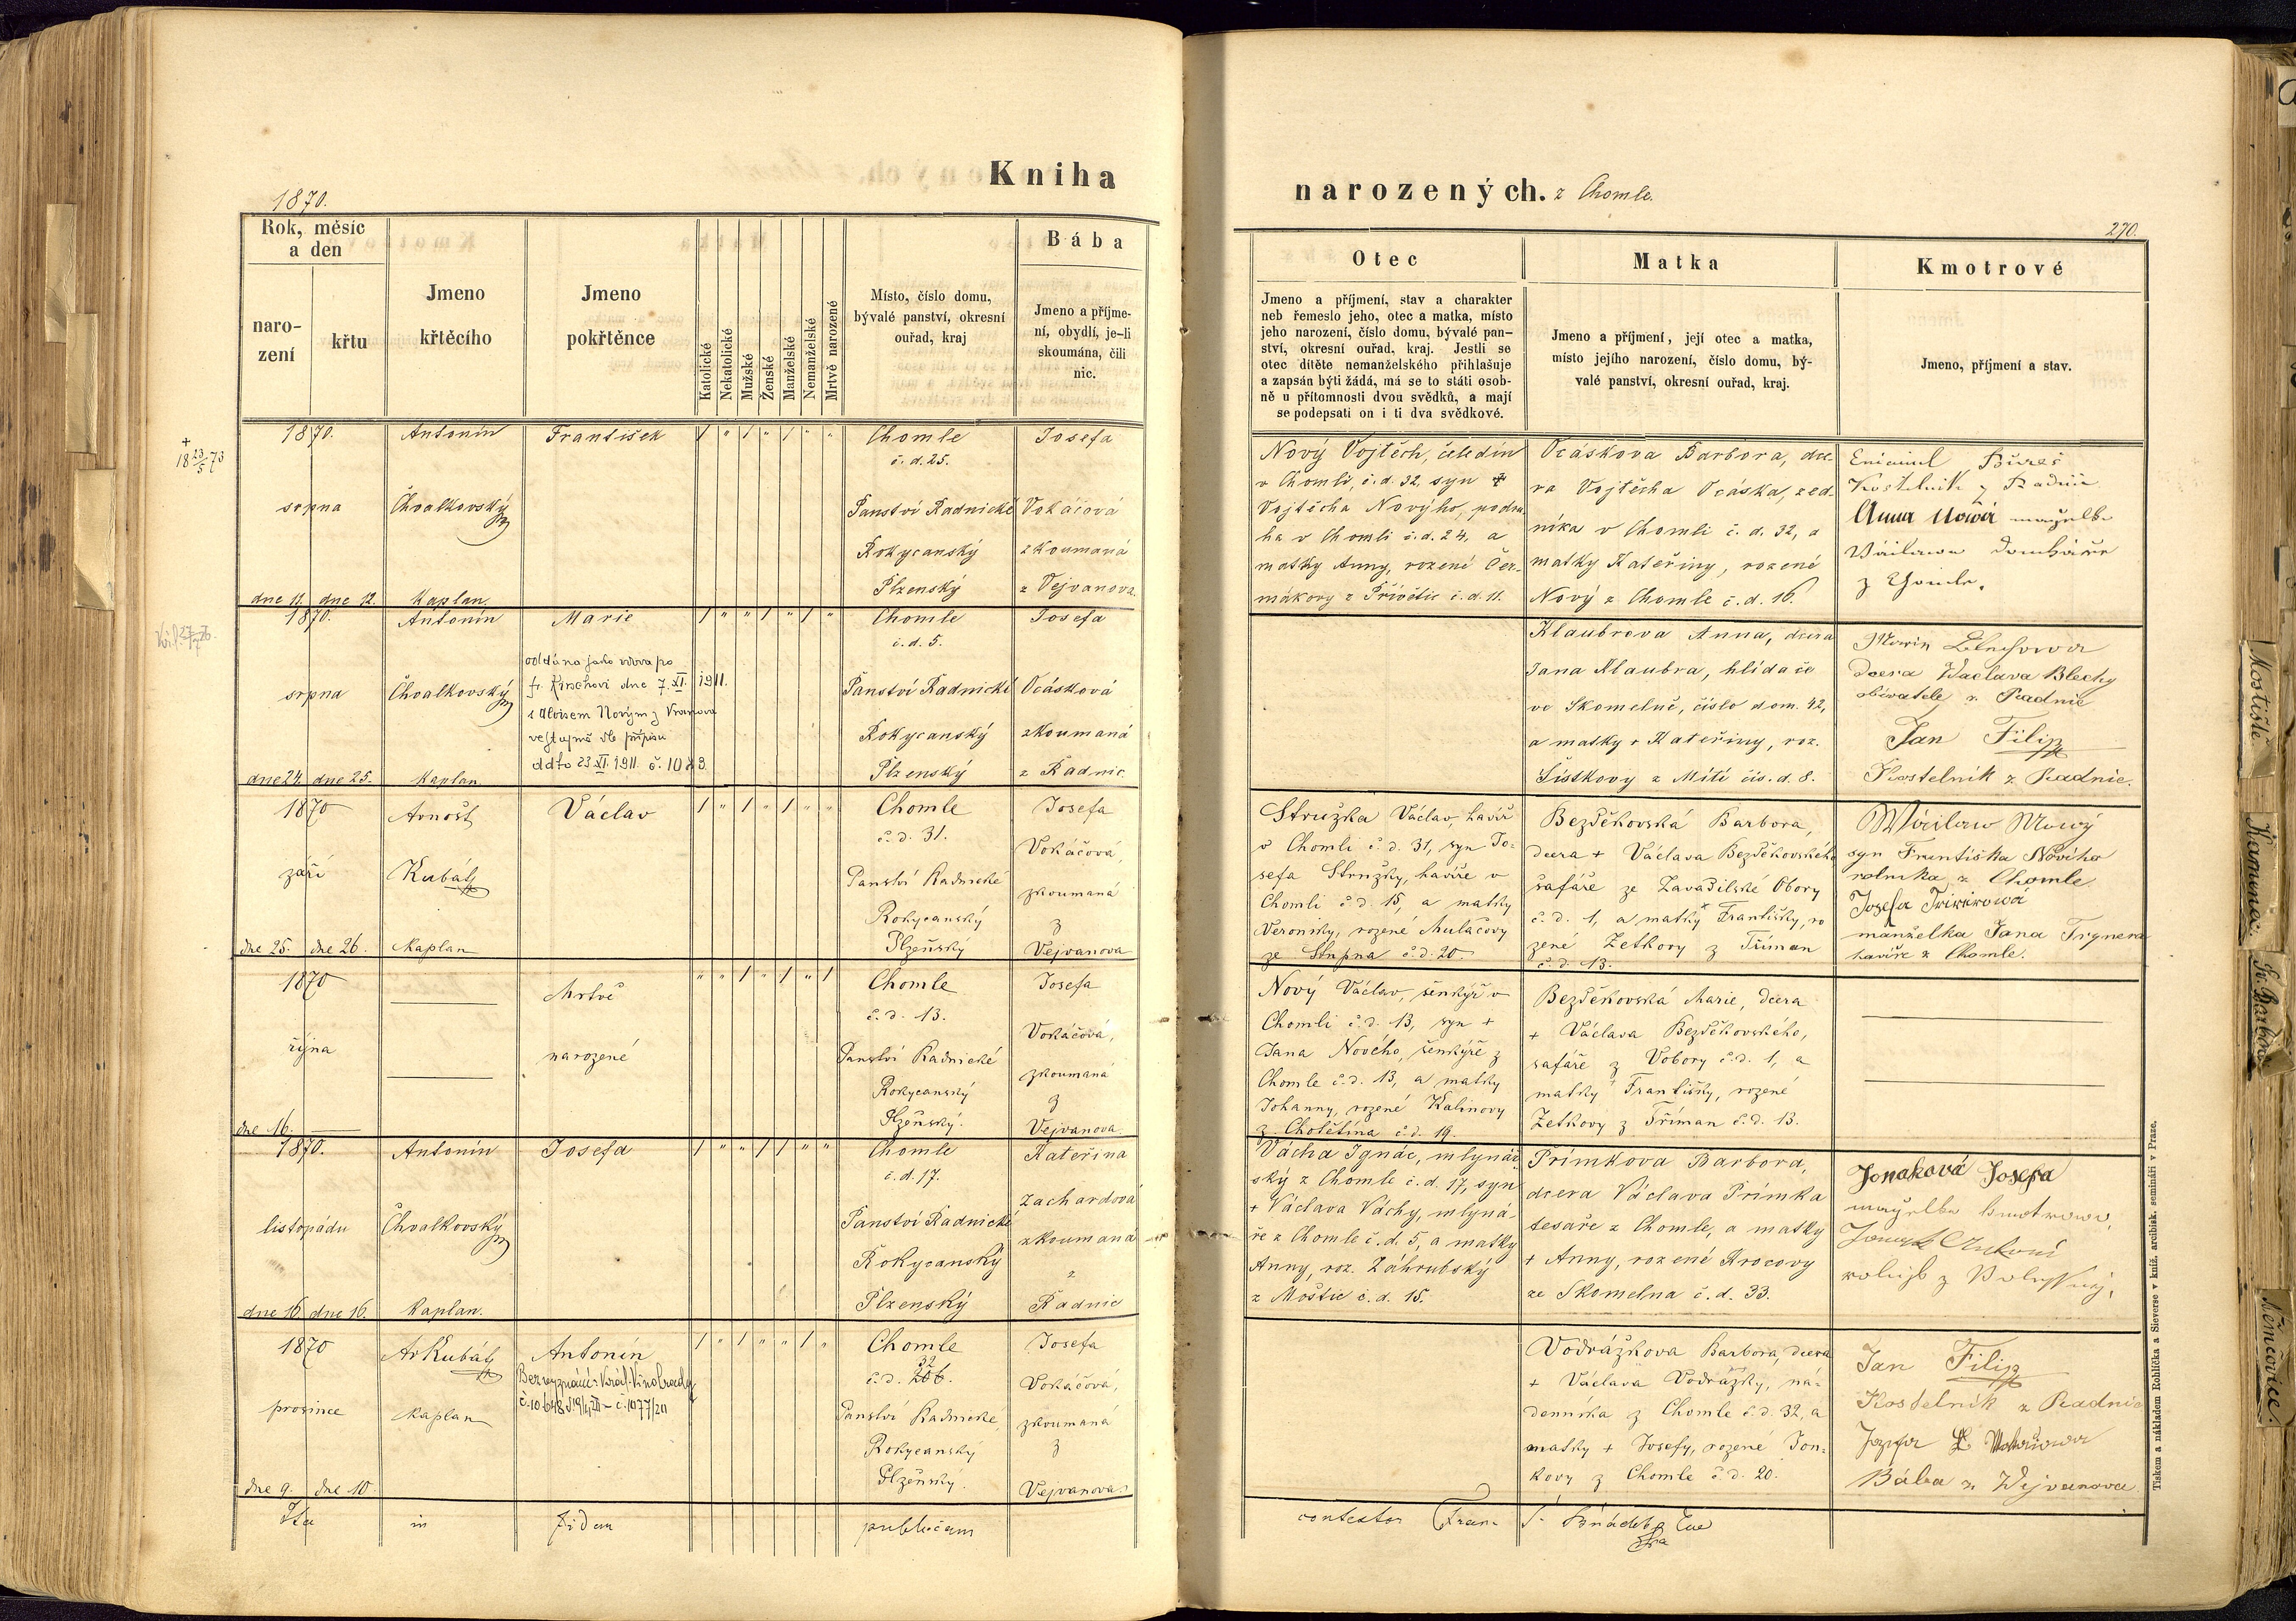 1870.
Kniha
narozených. z Chomle.
270.
Rok, měsíc
a den
naro-
zení
křtu
Jmeno
křtěcího
Jmeno
pokřtěnce
Katolické
Nekatolické
Mužské
Ženské
Manželské
Nemanželské
Mrtvě narozené
Místo, číslo domu,
bývalé panství, okresní
ouřad, kraj
Bába
Jmeno a příjme-
ní, obydlí, je-li
skoumána, čili
nic.
Otec
Jmeno a příjmení, stav a charakter
neb řemeslo jeho, otec a matka, místo
jeho narození, číslo domu, bývalé pan-
ství, okresní ouřad, kraj. Jestli se
otec dítěte nemanželského přihlašuje
a zapsán býti žádá, má se to státi osob-
ně u přítomnosti dvou svědků, a mají
se podepsati on i ti dva svědkové.
Matka
Jmeno a příjmení, její otec a matka,
místo jejího narození, číslo domu, bý-
valé panství, okresní ouřad, kraj.
Kmotrové
Jmeno, příjmení a stav.
+
18 23/5 73
1870.
srpna
dne 11. dne 12.
Antonín
Chvalkovský
Kaplan.
František
Chomle
č. d. 25.
Panství Radnické
Rokycanský
Plzenský
Josefa
Vokáčová
zkoumaná
z Vejvanova.
Nový Vojtěch, čeledín
v Chomli, č. d. 32, syn +
Vojtěcha Nového, podru-
ha v Chomli č. d. 24, a
matky Anny, rozené Čer-
mákovy z Přívětic č. d. 11.
Ocáskova Barbora, dce-
ra Vojtěcha Ocáska, zed-
níka v Chomli č. d. 32, a
matky Kateřiny, rozené
Nový z Chomle č. d. 16.
Bureš
Kostelník z Radnic
Anna Nová manželka
Václava
z Chomle.
1870.
srpna
dne 24. dne 25.
Antonín
Chvalkovský
Kaplan
Marie
oddána jako vdova po
fr. dne 7. XI. 1911.
s Aloisem Novým z Vranova
dle přípisu
ddto 23 XI 1911. č.
Chomle
č. d. 5.
Panství Radnické
Rokycanský
Plzenský
Josefa
Ocásková
zkoumaná
z Radnic.
Klaubrova Anna, dcera
Jana Klaubra, hlídače
ve Skomelně, číslo dom. 42,
a matky Kateřiny, roz.
Šístkovy z Mítí čís. d. 8.
dcera Waclava Blechy
obívatele z Radnic
Jan Filip
Kostelník z Radnic.
1870
září
dne 25. dne 26.
Arnošt
Kubát
Kaplan
Václav
Chomle
č. d. 31.
Panství Radnické
Rokycanský
Plzeňský
Josefa
Vokáčová,
zkoumaná
z
Vejvanova
Stružka Václav, havíř
v Chomli č. d. 31, syn Jo-
sefa Stružky, havíře v
Chomli č. d. 15, a matky
Veroniky, rozené Mulačovy
ze Stupna č. d. 20.
Bezděkovská Barbora,
dcera + Václava Bezděkovského
šafáře ze Zavadilské Obory
č. d. 1, a matky Františky, ro
zené Zetkovy z Tříman
č. d. 13.
Wáclaw Nowý
syn Františka Nového
rolníka z Chomle.
Josefa
manželka Jana Trgnera
havíře z Chomle.
1870
října
dne 16.
Mrtvě
narozené
Chomle
č. d. 13.
Panství Radnické
Rokycanský
Plzeňský.
Josefa
Vokáčová,
zkoumaná
z
Vejvanova
Nový Václav, šenkýř v
Chomli č. d. 13, syn +
Jana Nového, šenkýře z
Chomle č. d. 13, a matky
Johanny, rozené Kalinovy
z Cholětína č. d. 19.
Bezděkovská Marie, dcera
+ Václava Bezděkovského,
šafáře z Vobory č. d. 1, a
matky Františky, rozené
Zetkovy z Tříman č. d. 13.
1870.
listopádu
dne 16. dne 16.
Antonín
Chvalkovský
Kaplan.
Josefa
Chomle
č. d. 17.
Panství Radnické
Rokycanský
Plzenský
Kateřina
Zachardová
zkoumaná
z
Radnic
Vácha Ignác, mlynář-
ský z Chomle č. d. 17, syn
+ Václava Váchy, mlyná-
ře z Chomle č. d. 5, a matky
Anny, roz. Záhrubský
z Moštic č. d. 15.
Přímkova Barbora,
dcera Václava Přímka
tesaře z Chomle, a matky
+ Anny, rozené Krocovy
ze Skomelna č. d. 33.
Jonaková Josefa
1870
prosince
dne 9. dne 10.
Ar Kubát
Kaplan
Antonín
Bez vyznání: Král. Vinohrady
Chomle
32
č. d. 206.
Panství Radnické,
Rokycanský
Plzeňský.
Josefa
Vokáčová,
zkoumaná
z
Vejvanova.
Vodrážkova Barbora, dcera
+ Václava Vodrážky, ná-
denníka z Chomle č. d. 32, a
matky + Josefy, rozené Jon-
kovy z Chomle č. d. 20.
Jan Filip
Kostelník z Radnic
Bába z Wejvanova
Ita in fidem publicam contestor
Tiskem a nákladem Rohlíčka a Sieverse v kníž. arcibisk. semináři v Praze.
Mostiště.
Kamenec.
Sv. Barbora
Němčovice.